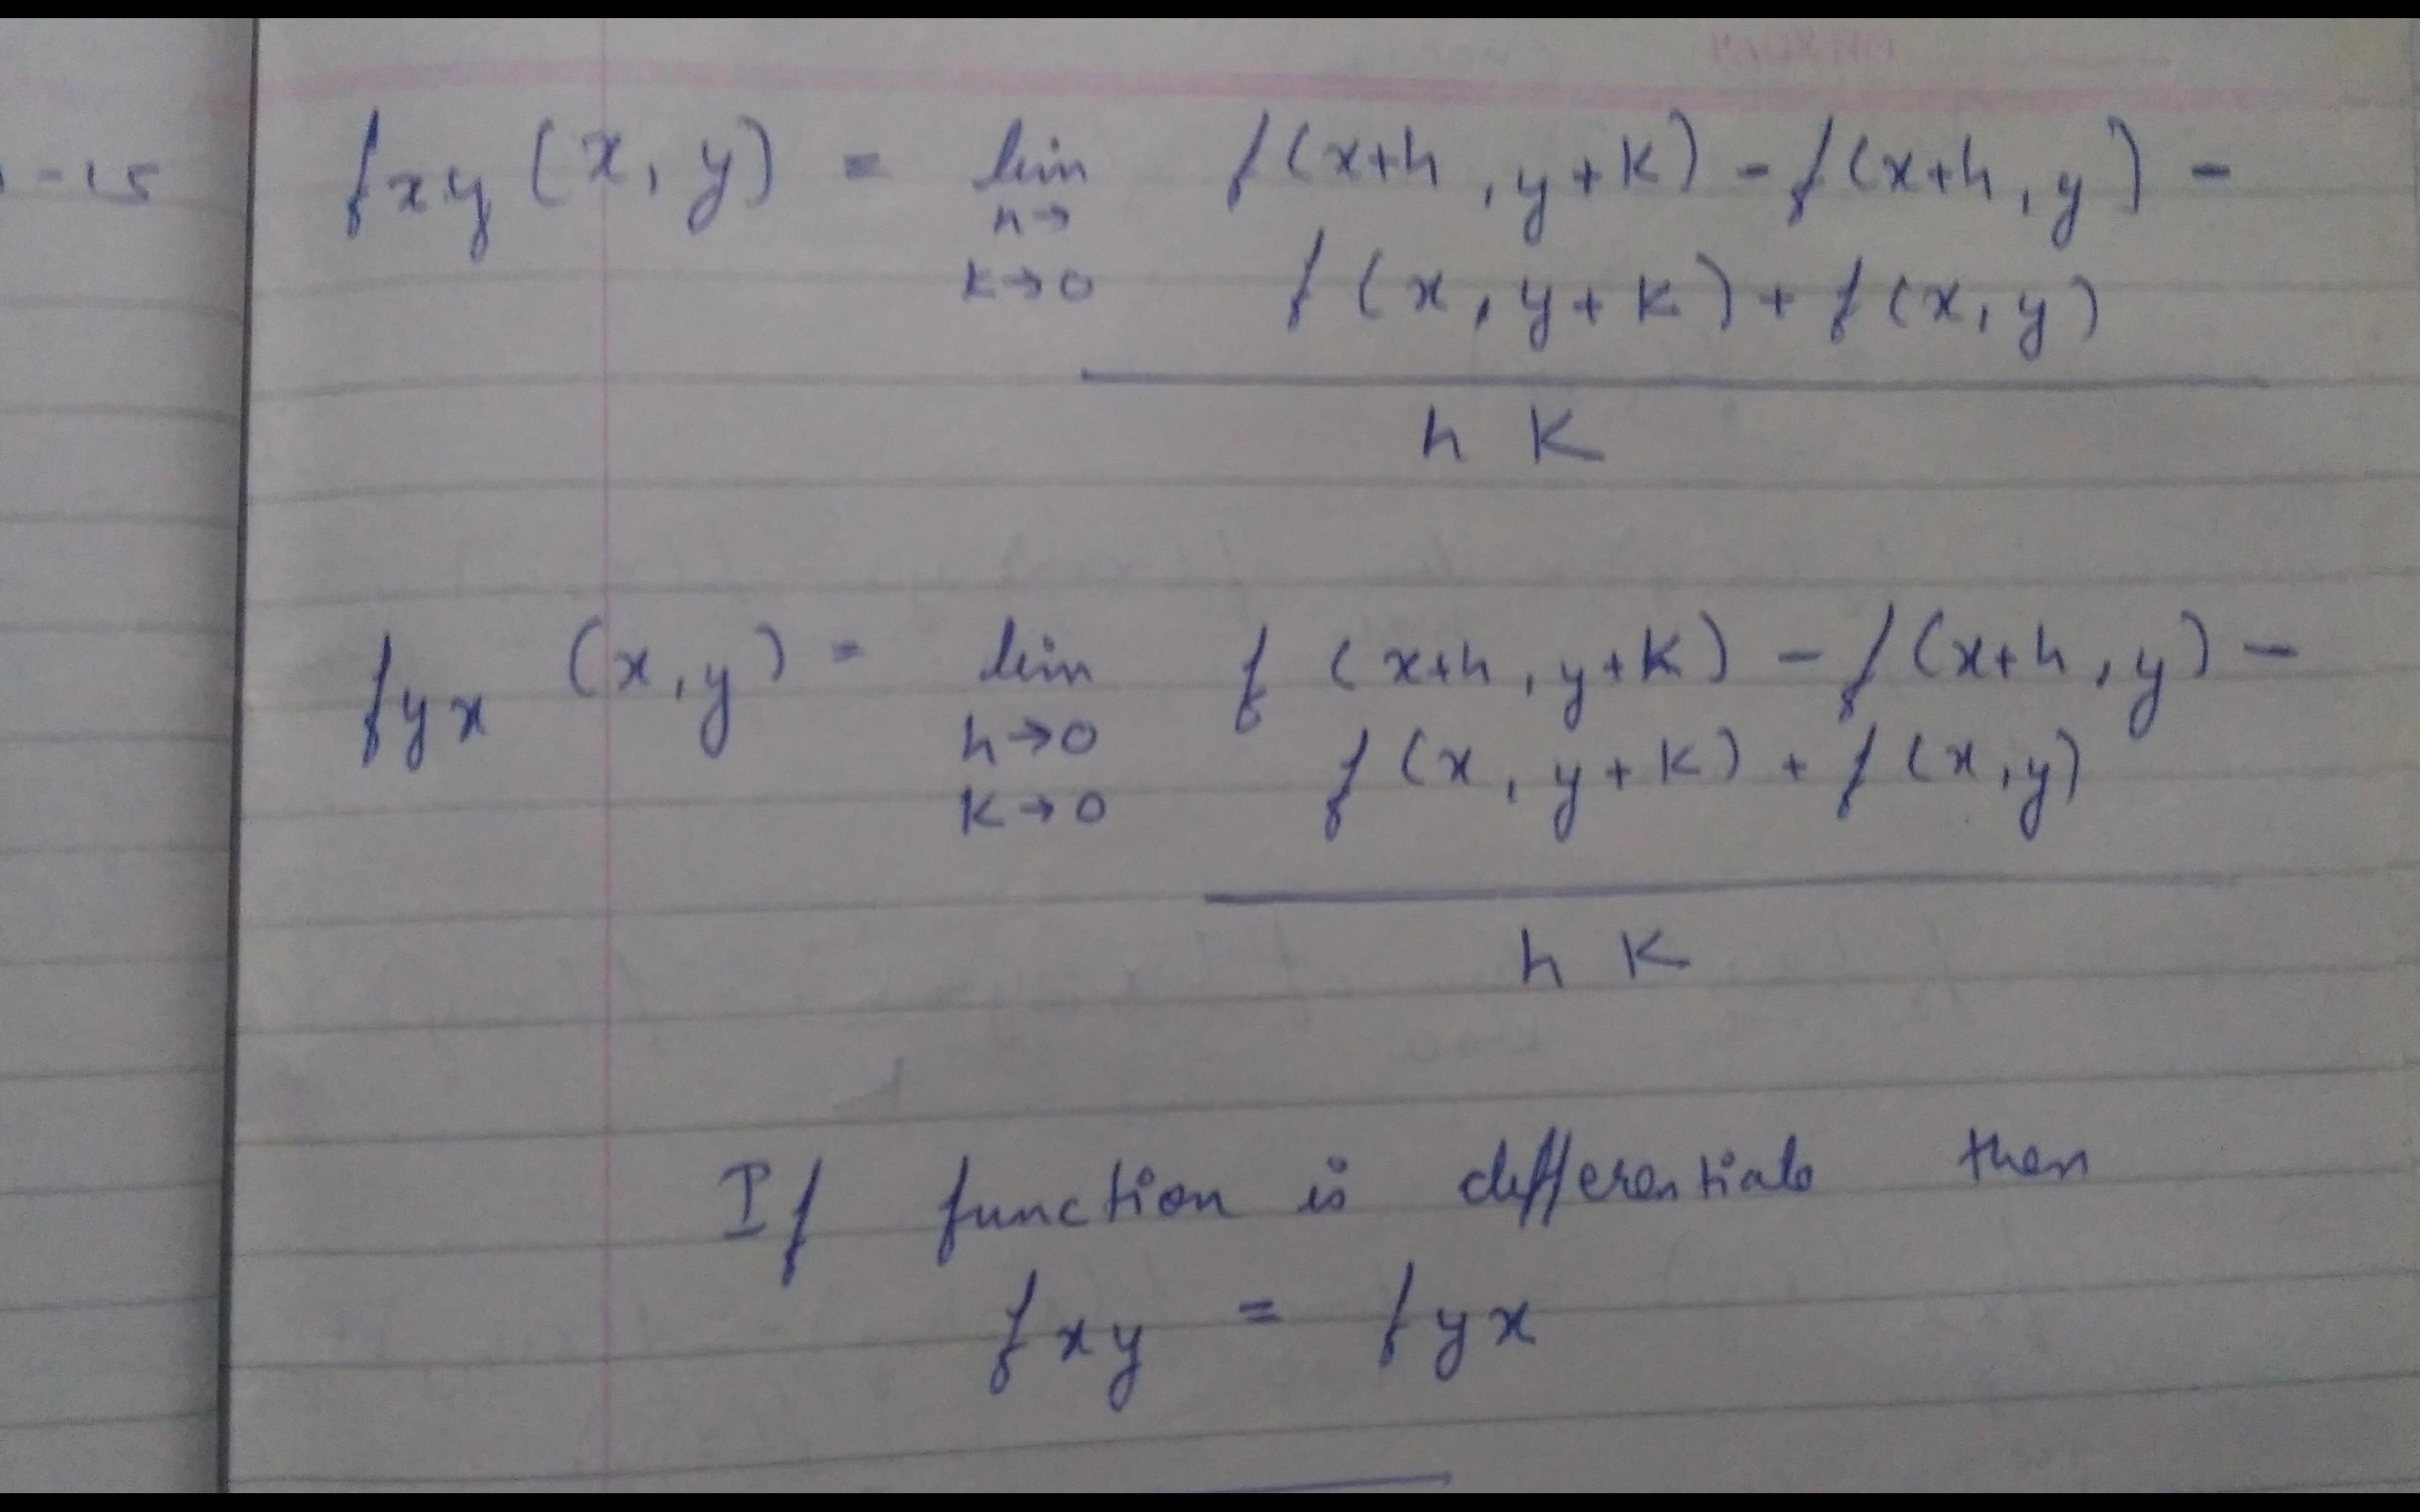 -15
fxy (x, y) = lim f(x+h, y+k) - f(x+h, y) -
h→
k→0 f(x, y+k) + f(x, y)
h k
fyx (x, y) = lim f(x+h, y+k) - f(x+h, y) -
h→0
k→0 f(x, y+k) + f(x, y)
h k
If function is differentiale then
fxy = fyx